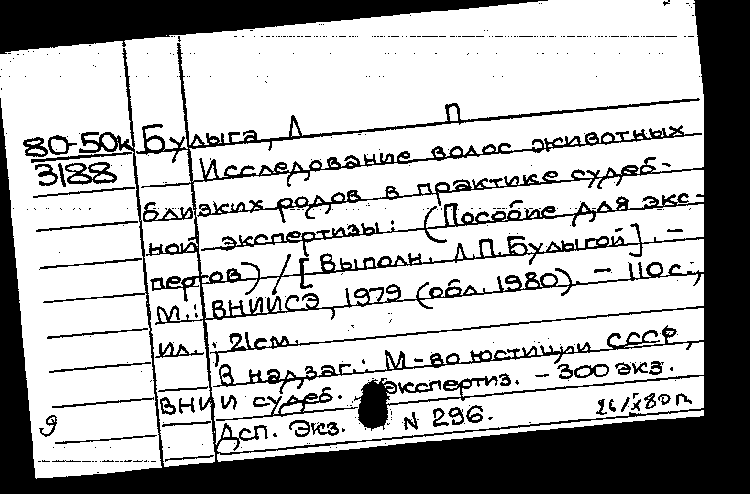 80-50к Булыга, Л П
3188 Исследование волос животных
близких родов в практике судеб-
ной экспертизы: (Пособие для экс-
пертов) / [Выполн. Л.П.Булыгой]. –
М.: ВНИИСЭ, 1979 (обл. 1980). – 110 с.,
ил. ; 21см.
В надзаг.: М-во юстиции СССР,
ВНИИ судеб. экспертиз. – 300 экз.
9 Дсп. Экз. N 296. 26/X80